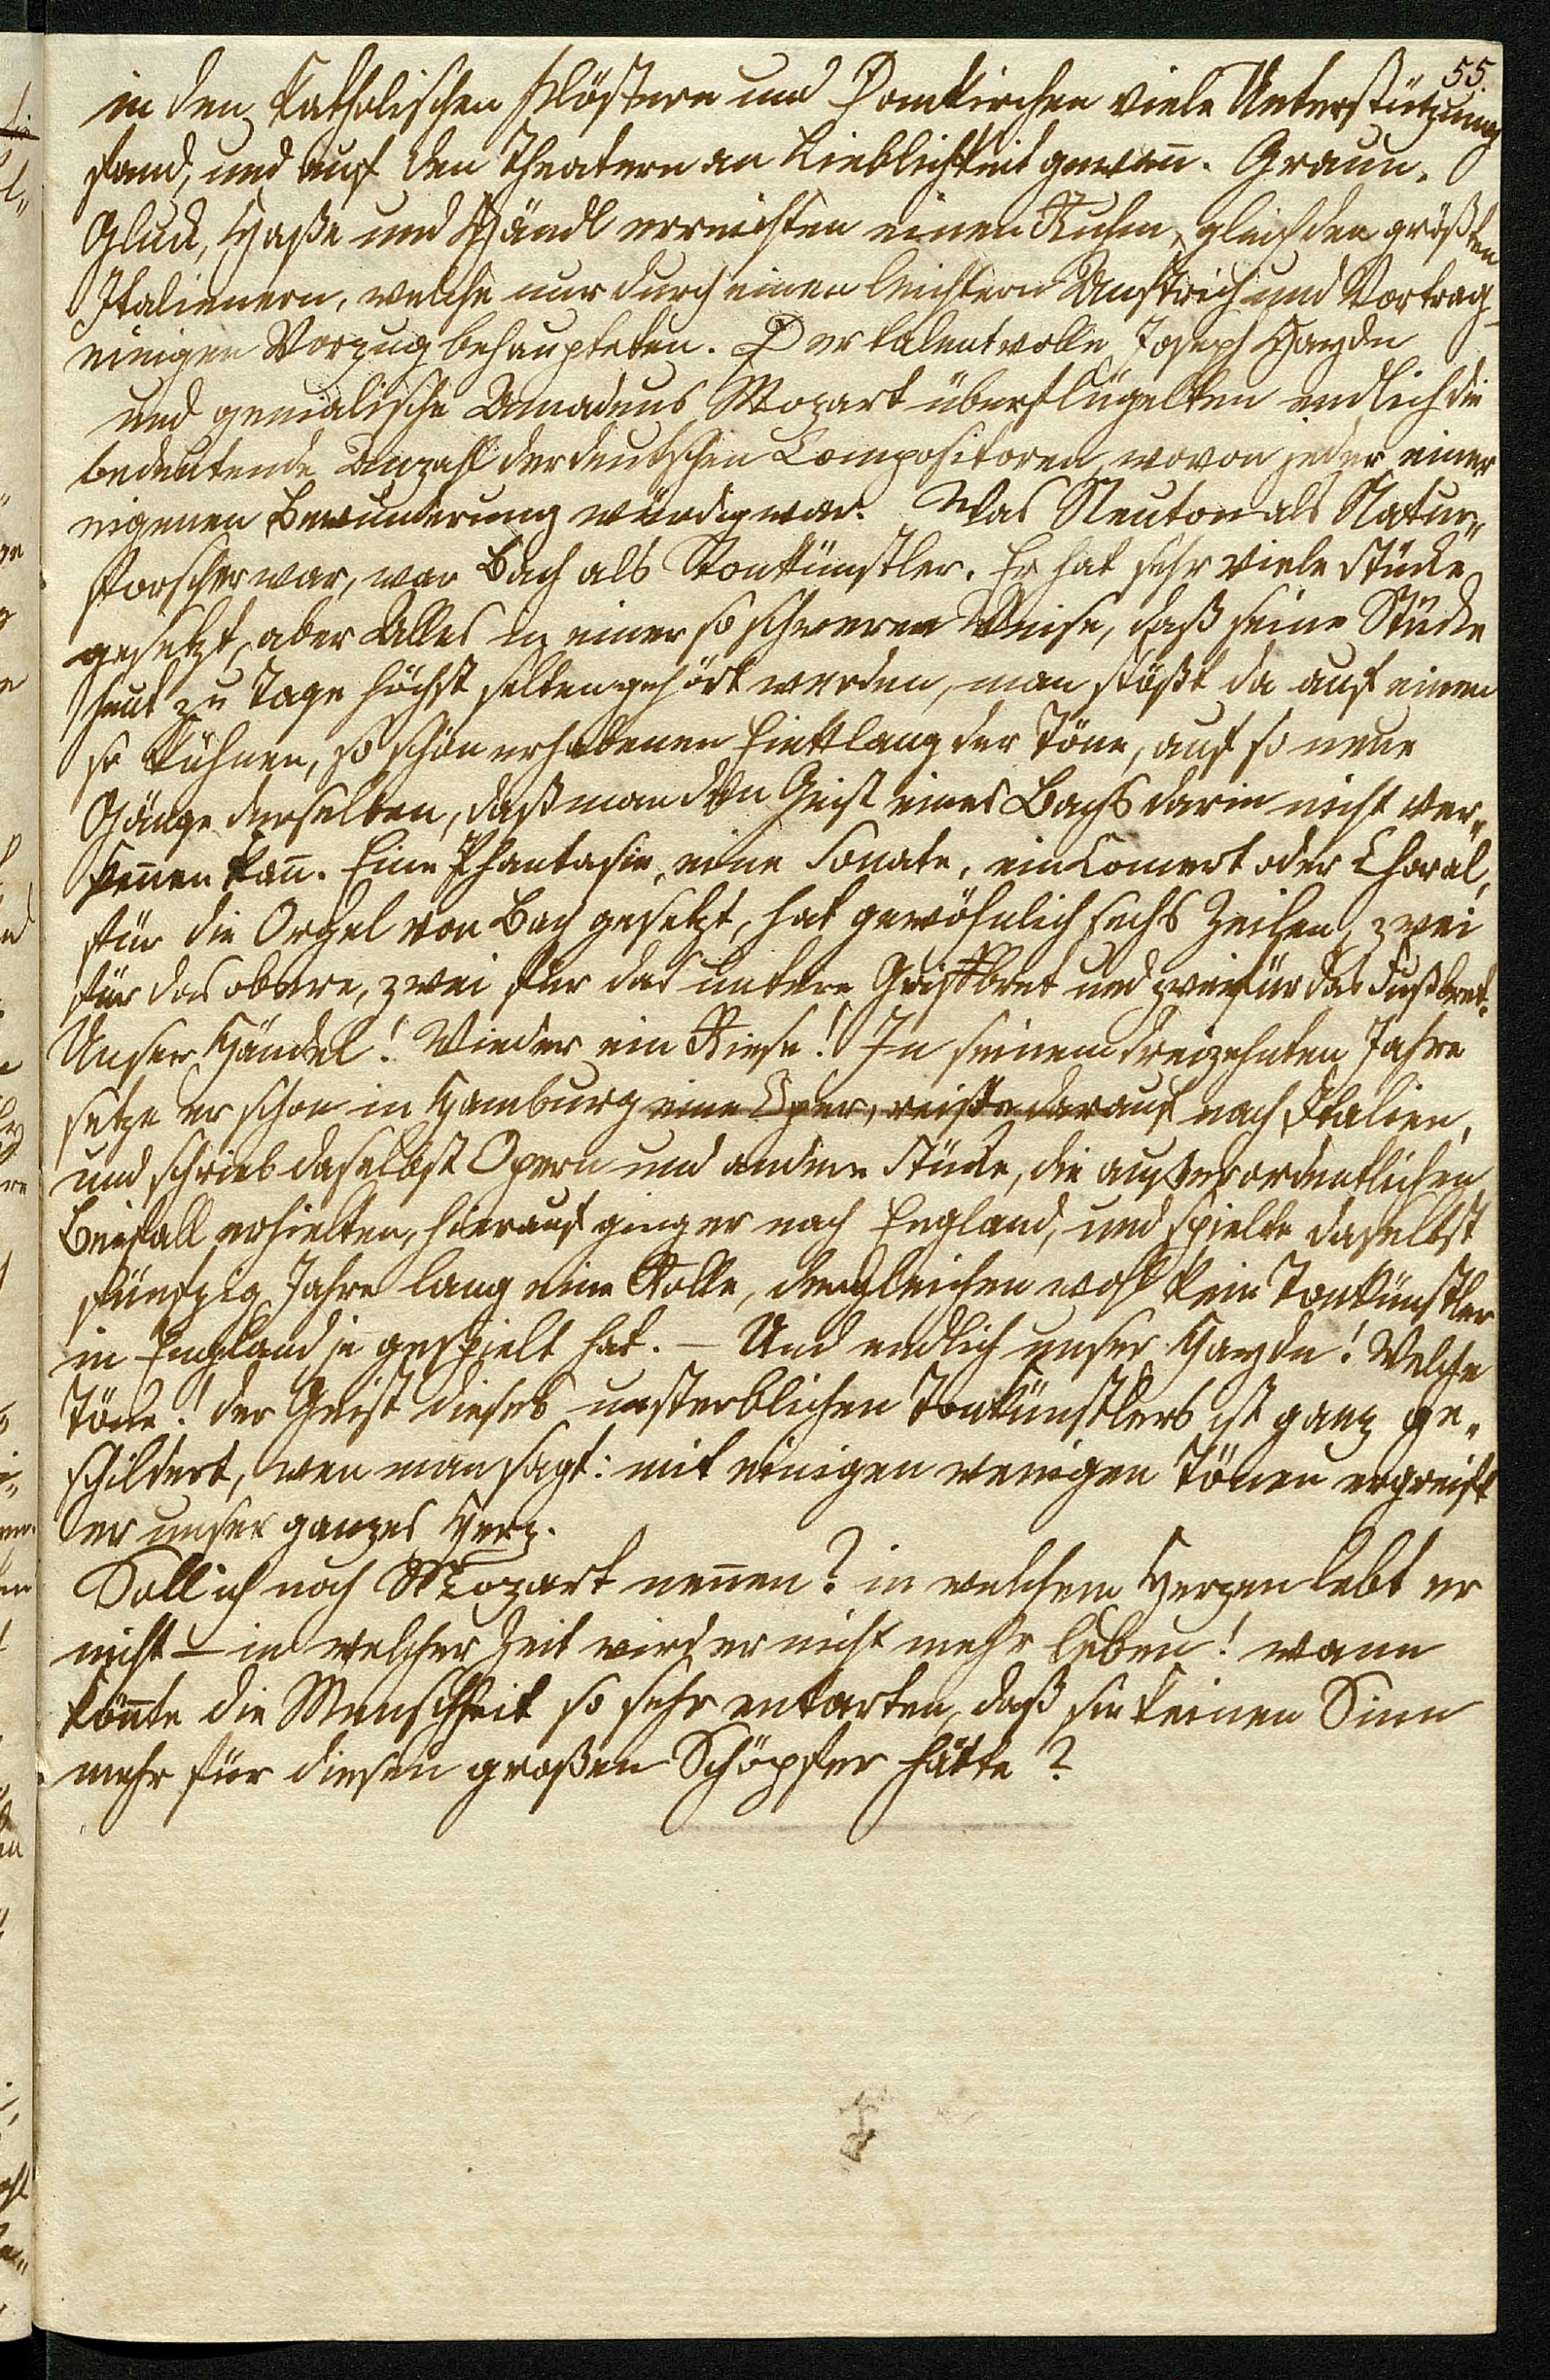 55.
in den katholischen Klöstern und Domkirchen viele Unterstützung
fand, und auf den Theatern an Lieblichkeit gewan̄. Graun,
Gluck, Haße und Händl erreichten einen Ruhm, gleich den größten
Italienern, welche nur durch einen leichtern Anstrich und Vortrag
einigen Vorzug behaupteten. Der talentvolle Joseph Haydn
und genialische Amadeus Mozart überflügelten endlich die
bedeutende Anzahl der deutschen Compositoren, wovon jeder einer
eigenen Bewunderung würdig war. Was Neuton als Natur„
forscher war, war Bach als Tonkünstler. Er hat sehr viele Stücke
gesetzt, aber Alles in einer so schweren Weise, daß seine Stücke
heut zu Tage höchst selten gehört werden, man stößt da auf einen
so kühnen, so schön erhabenen Einklang der Töne, auf so neue
Gänge derselben, daß man den Geist eines Bachs darin nicht ver„
ken̄en kan̄. Eine Phantasie, eine Sonate, ein Concert oder Choral,
für die Orgel von Bach gesetzt, hat gewöhnlich sechs Zeilen, zwei
für das obere, zwei für das untere Griffbret und zwei für das Fußbret.
Unser Händel! Wieder ein Riese! In seinem dreizehnten Jahre
setze er schon in Hamburg eine Oper, reiste darauf nach Italien,
und schrieb daselbst Opern und andere Stücke, die außerordentlichen
Beifall erhielten, hierauf ging er nach England, und spielte daselbst
fünfzig Jahre lang eine Rolle, dergleichen wohl kein Tonkünstler
in England je gespielt hat. – Und endlich unser Haydn! Welche
Töne! der Geist dieses unsterblichen Tonkünstlers ist ganz ge„
schildert, wen man sagt: mit einigen wenigen Tönen ergreift
er unser ganzes Herz.
Soll ich noch Mozart nen̄en? in welchem Herzen lebt er
nicht – in welcher Zeit wird er nicht mehr leben! wann
kön̄te die Menschheit so sehr entarten, daß sie keinen Sinn
mehr für diesen großen Schöpfer hätte?